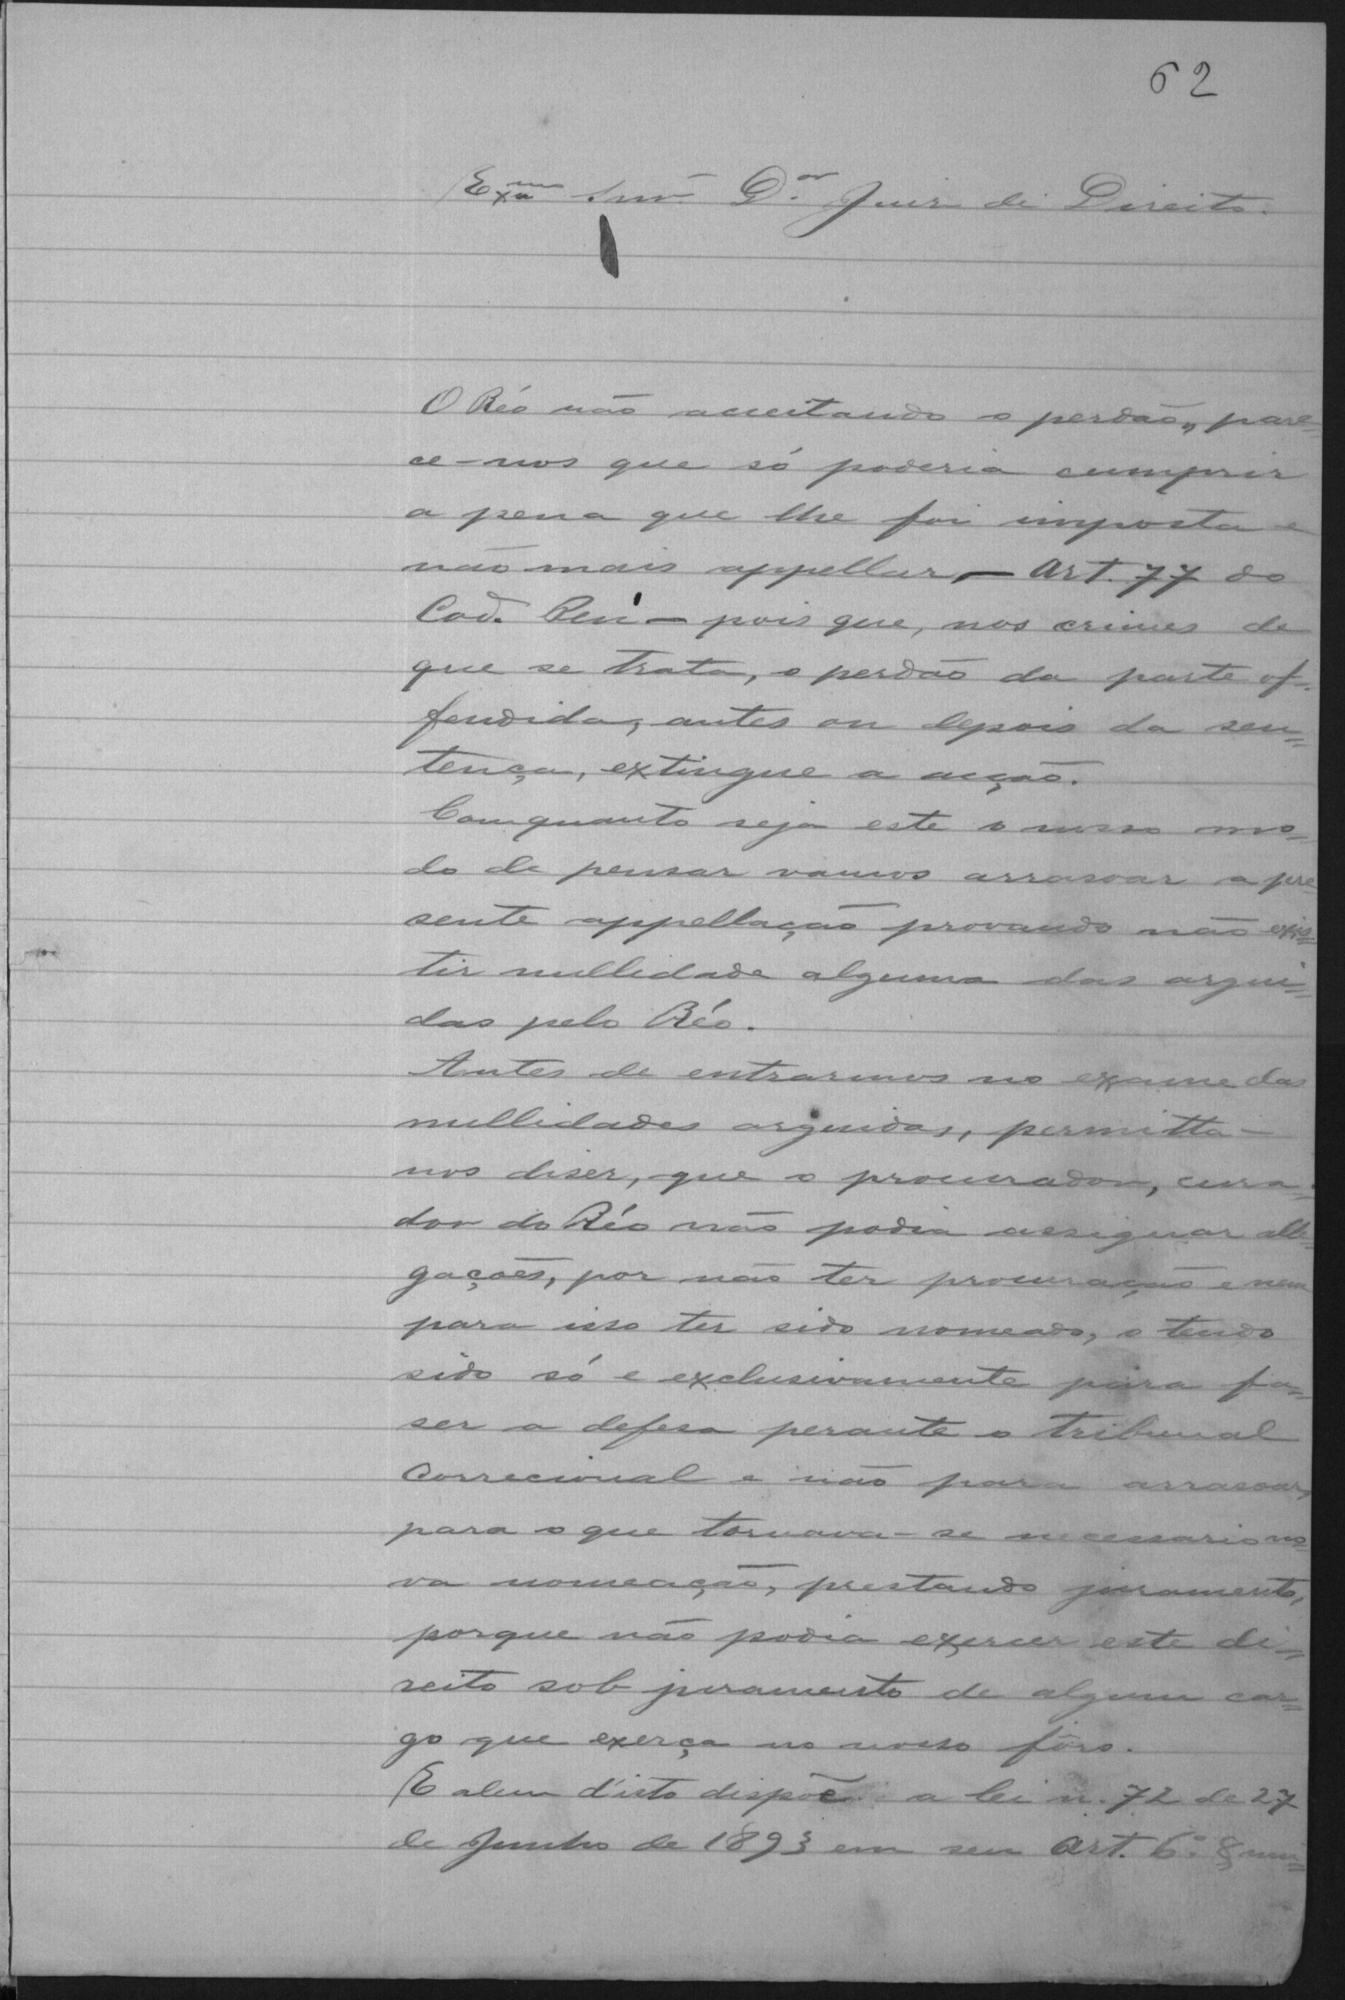 62
Exmo Snr Dor Juiz de Direito.
O Réo não acceitando o perdão, pare=
ce-nos que só poderia cumprir
a pena que lhe foi imposta e
não mais appellar, — Art. 77 do
Cod. Pen — pois que, nos crimes de
que se trata, o perdão da parte of-
fendida, antes ou depois da sen=
tença, extingue a acção.
Comquanto seja este o nosso mo=
do de pensar vamos arrasoar a pre
sente appellação provando não exis=
tir nullidade alguma das argui=
das pelo Réo.
Antes de entrarmos no exame das
nullidades arguidas, permitta-
nos diser, que o procurador, cura=
dor do Réo não podia assignar alle=
gações, por não ter procuração e nem
para isso ter sido nomeado, o tendo
sido só e exclusivamente para fa=
ser a defesa perante o tribunal
Correcional e não para arrasoar,
para o que tornava-se necessario no=
va nomeação, prestando juramento,
porque não podia exercer este di=
reito sob juramento de algum car=
go que exerça no nosso fôro.
E alem d'isto dispõe a lei n. 72 de 27
de Junho de 1893 em seu Art. 6º §